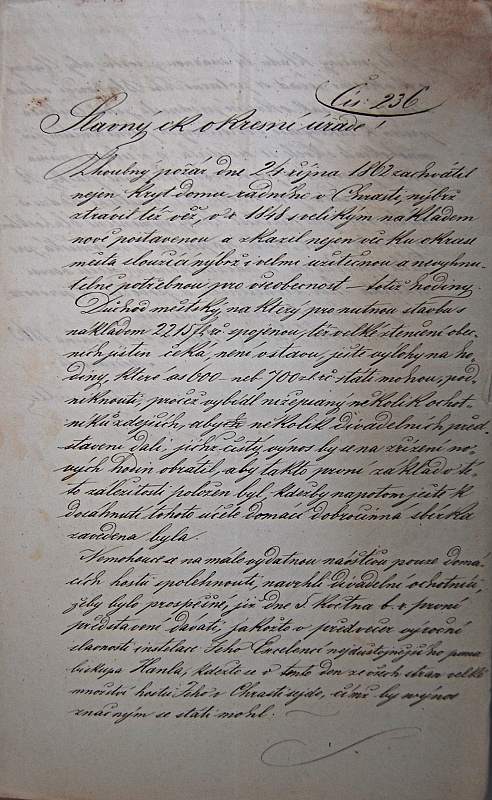 Čís: 236
Slavný ck okresní úřade!
Zhoubný požár dne 24 října 1862 zachvátil
nejen kryt domu radního v Chrasti, nýbrž
ztrávil též věž, v r 1848 s velikým nákladem
nově postavenou a zkazil nejen věc ku okrase
města sloužící nýbrž i velmi užitečnou a nevyhnu-
telně potřebnou pro všeobecnost – totiž hodiny.
Důchod městský, na který pro nutnou stavbu s
nákladem 2215 fl. spojenou, též velké ztenčení obec-
ních jistin čeká, není v stavu, ještě výlohy na ho-
diny, které as 600 neb 700 zl státi mohou, pod-
niknouti, pročež vybídl nížepsaný několik ochot-
níků zdejších, aby několik divadelních před-
stavení dali, jichž čistý výnos by se na zřízení no-
vých hodin obrátil, aby takto první základ v té-
to záležitosti položen byl, kdežby napotom ještě k
dosáhnutí tohoto účele domácí dobročinná sbírka
zavedena byla.
Nemohouce se na málo vydatnou návštěvu pouze domá-
cích hostí spolehnouti, navrhli divadelní ochotníci,
žeby bylo prospěšné, již dne 5. května b. r. první
představení dávati, jakožto v předvečer výroční
slavnosti instalace Jeho Excelencí nejdůstojnějšího pana
biskupa Hanla, kdežto se v tento den ze všech stran velké
množství hostů v Chrasti sejde, čímž by výnos
značným se státi mohl.